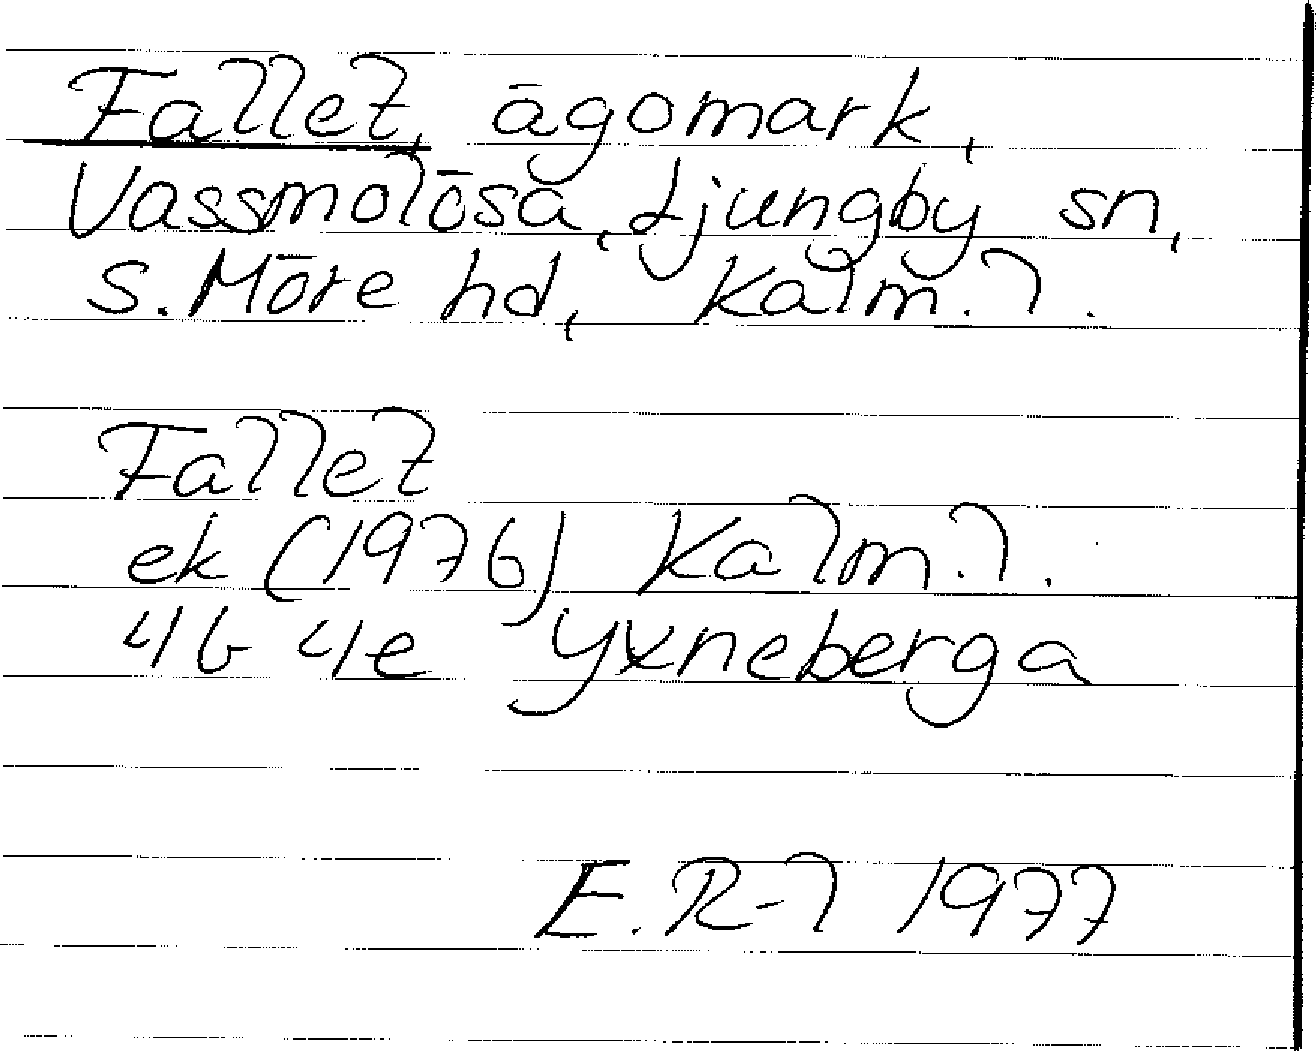 Fallet, ägomark,
Vassmolösa, Ljungby sn,
S. Möre hd, Kalm. l.
Fallet
ek (1976) Kalm. l.
4G 4e Yxneberga
E. R-l 1977